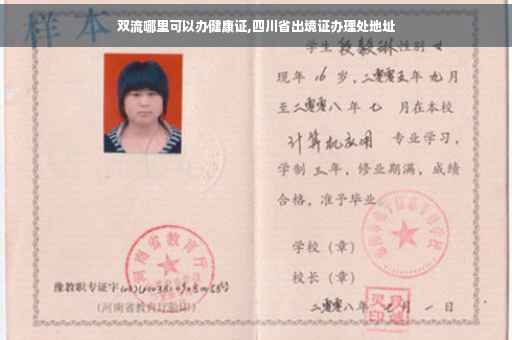 双流哪里可以办健康证,四川省出境证办理处地址
样本
学生段毅琳性别女
现年16岁,二零零五年九月
至二零零八年七月在本校
计算机应用 专业学习,
学制三年,修业期满,成绩
合格,准予毕业
学校(章)
校长(章)
二零零八年七月一日
河南省教育厅
豫教职专证字
(河南省教育厅验印)